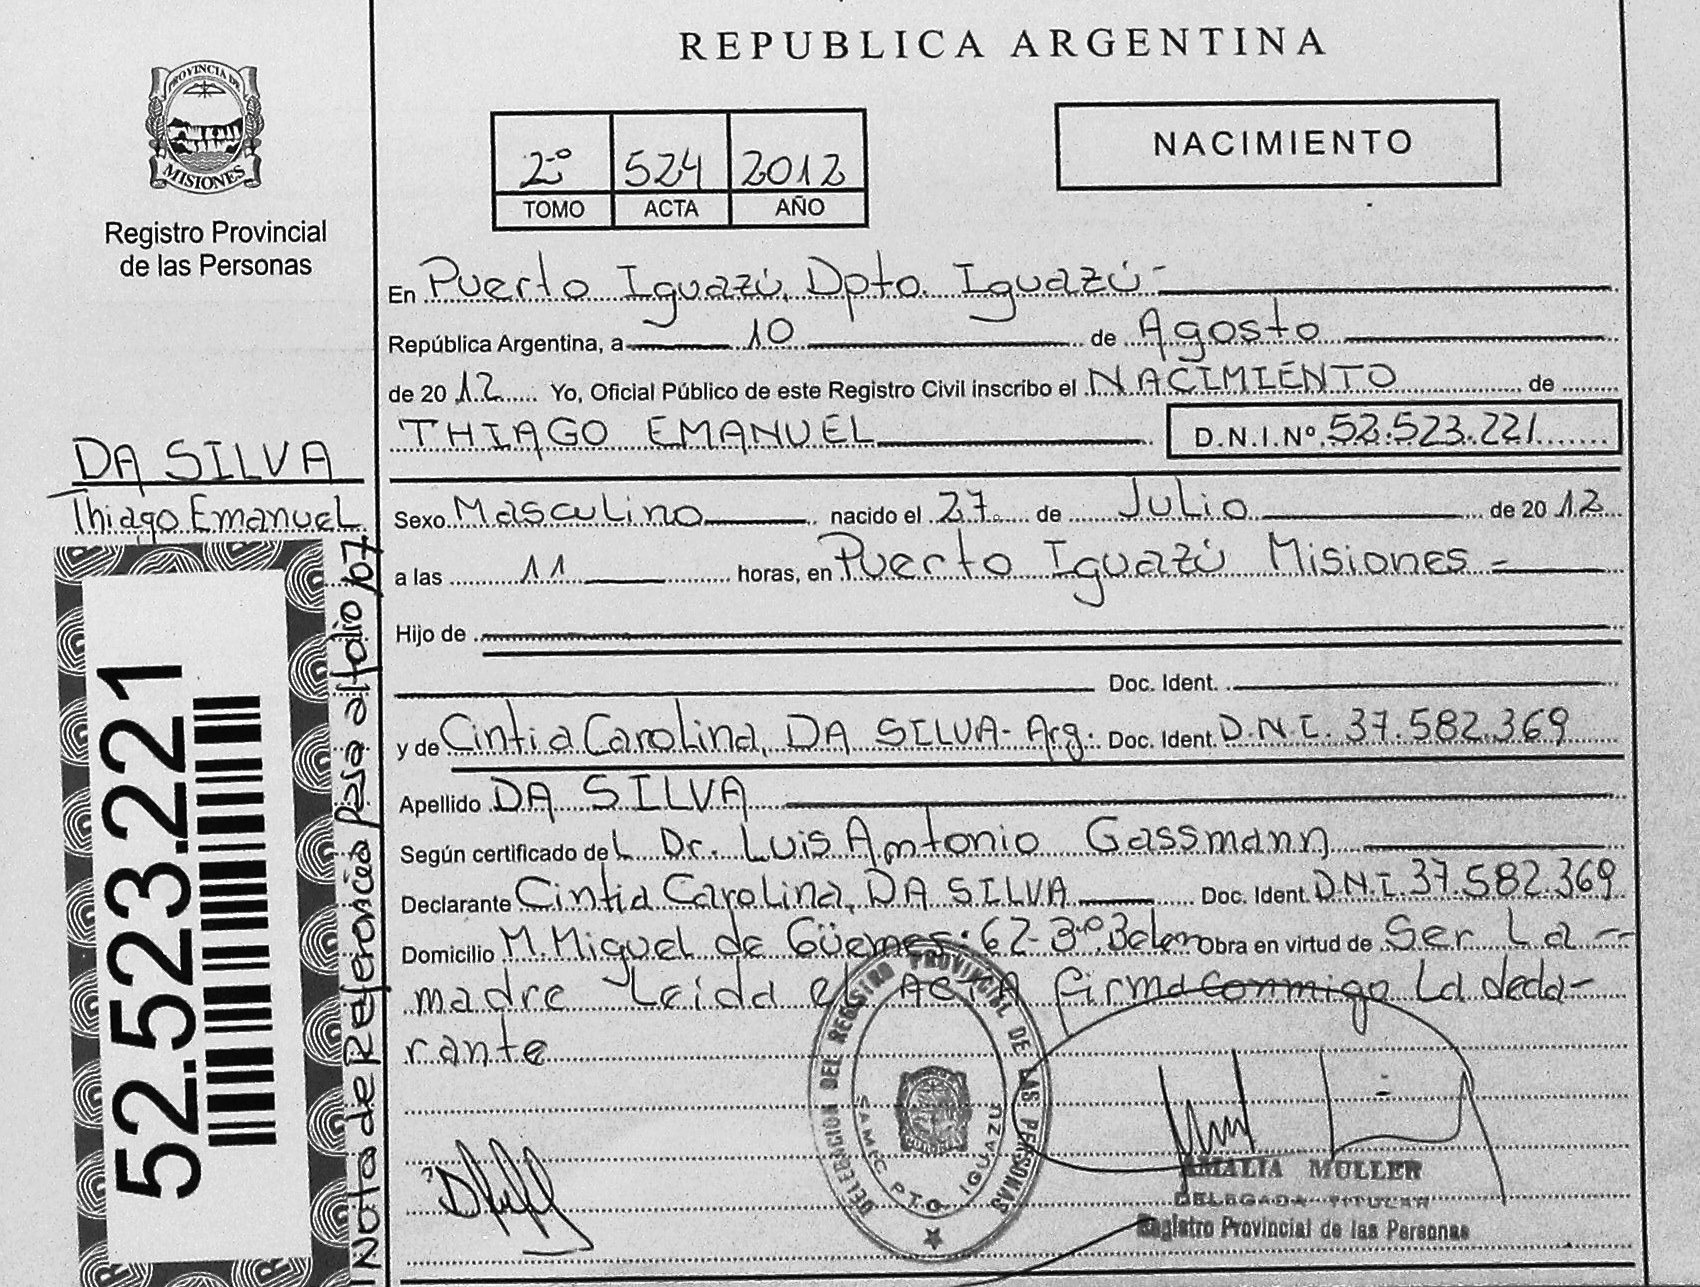 REPUBLICA ARGENTINA
PROVINCIA DE
MISIONES
Registro Provincial
de las Personas
2º 524 2012
TOMO ACTA AÑO
NACIMIENTO
En Puerto Iguazú, Dpto. Iguazú
República Argentina, a 10 de Agosto
de 2012 Yo, Oficial Público de este Registro Civil inscribo el NACIMIENTO de
THIAGO EMANUEL D.N.I.Nº 52.523.221
DA SILVA
Thiago Emanuel
Sexo Masculino nacido el 27 de Julio de 2012
a las 11 horas, en Puerto Iguazú Misiones
Hijo de
Doc. Ident.
y de Cintia Carolina, DA SILVA- Arg. Doc. Ident. D.N.I. 37.582.369
Apellido DA SILVA
Según certificado del Dr. Luis Antonio Gassmann
Declarante Cintia Carolina, DA SILVA Doc. Ident. D.N.I. 37.582.369
Domicilio M. Miguel de Güemes: 62- 3º Belen Obra en virtud de Ser La
madre Leida el ACTA firma conmigo La decla-
rante
52.523.221
Nota de Referencia Pasa al folio 107
DELEGACION DEL REGISTRO PROVINCIAL DE LAS PERSONAS
PTO. IGUAZU
AMALIA MULLER
DELEGADA TITULAR
Registro Provincial de las Personas